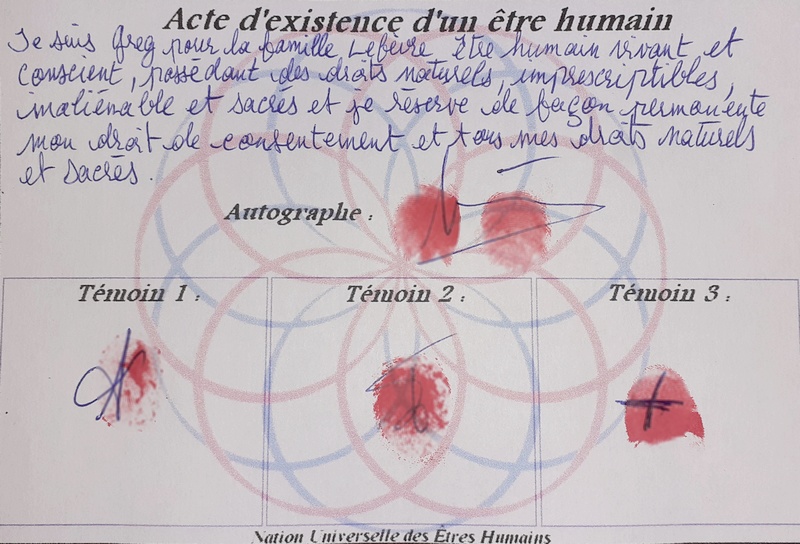 Acte d'existence d'un être humain
Je suis Greg pour la famille Lefevre être humain vivant et
conscient, possédant des droits naturels, imprescriptibles,
inaliénable et sacrés et je réserve de façon permanente
mon droit de consentement et tous mes droits naturels
et sacrés.
Autographe :
Témoin 1 :
Témoin 2 :
Témoin 3 :
Nation Universelle des Êtres Humains